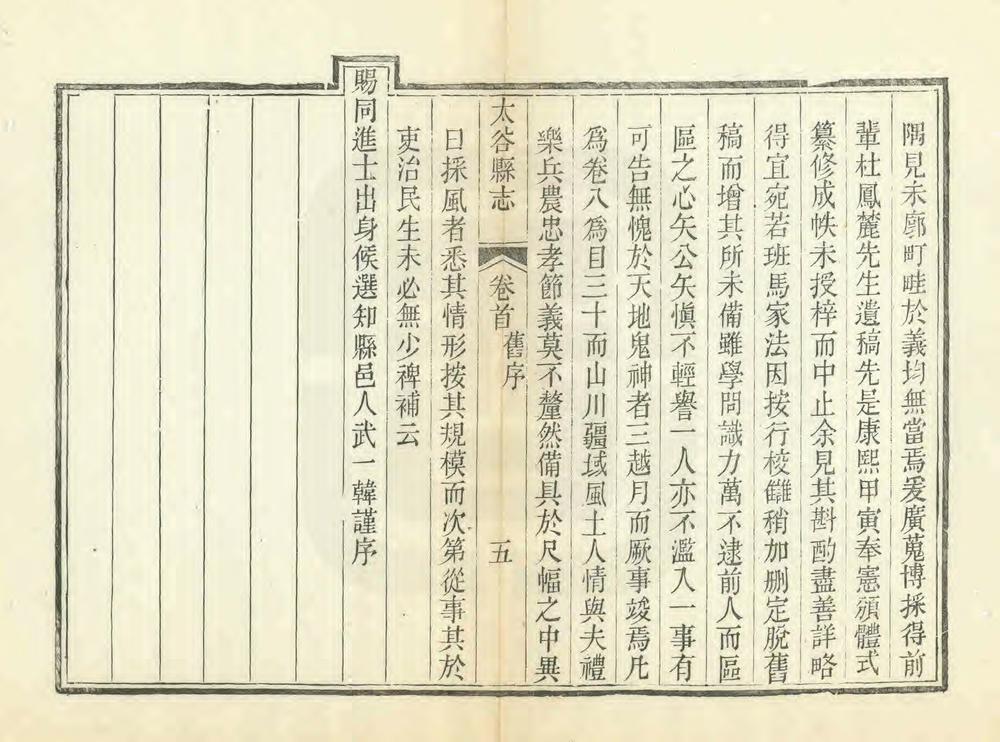 隅見未廓町畦於義均無當焉爰廣蒐博採得前
輩杜鳳麓先生遺稿先是康熙甲寅奉憲頒體式
纂修成帙未授梓而中止余見其斟酌盡善詳略
得宜宛若班馬家法因按行校讎稍加刪定脫舊
稿而增其所未備雖學問識力萬不逮前人而區
區之心矢公矢慎不輕譽一人亦不濫入一事有
可告無愧於天地鬼神者三越月而厥事竣焉凡
為卷八為目三十而山川疆域風土人情與夫禮
樂兵農忠孝節義莫不釐然備具於尺幅之中異
太谷縣志 卷首 舊序 五
日採風者悉其情形按其規模而次第從事其於
吏治民生未必無少裨補云
賜同進士出身候選知縣邑人武一韓謹序